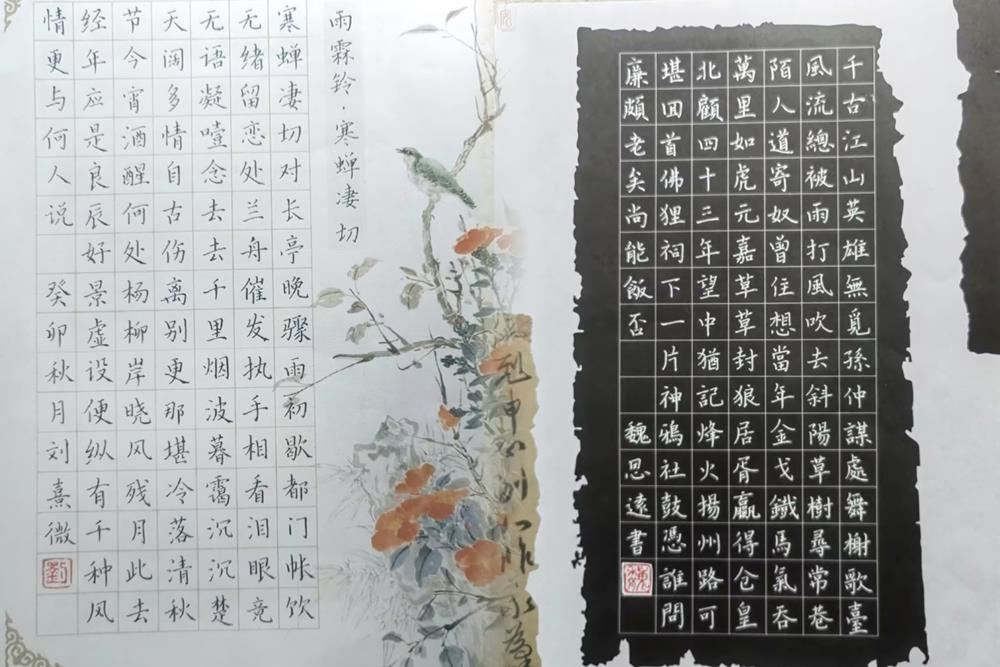 雨霖铃·寒蝉凄切
寒蝉凄切对长亭晚骤雨初歇都门帐饮
无绪留恋处兰舟催发执手相看泪眼竟
无语凝噎念去去千里烟波暮霭沉沉楚
天阔多情自古伤离别更那堪冷落清秋
节今宵酒醒何处杨柳岸晓风残月此去
经年应是良辰好景虚设便纵有千种风
情更与何人说 癸卯秋月刘熹微
劉
千古江山英雄無覓孫仲謀處舞榭歌臺
風流總被雨打風吹去斜陽草樹尋常巷
陌人道寄奴曾住想當年金戈鐵馬氣吞
萬里如虎元嘉草草封狼居胥贏得仓皇
北顧四十三年望中猶記烽火揚州路可
堪回首佛狸祠下一片神鴉社鼓憑誰問
廉頗老矣尚能飯否 魏思遠書